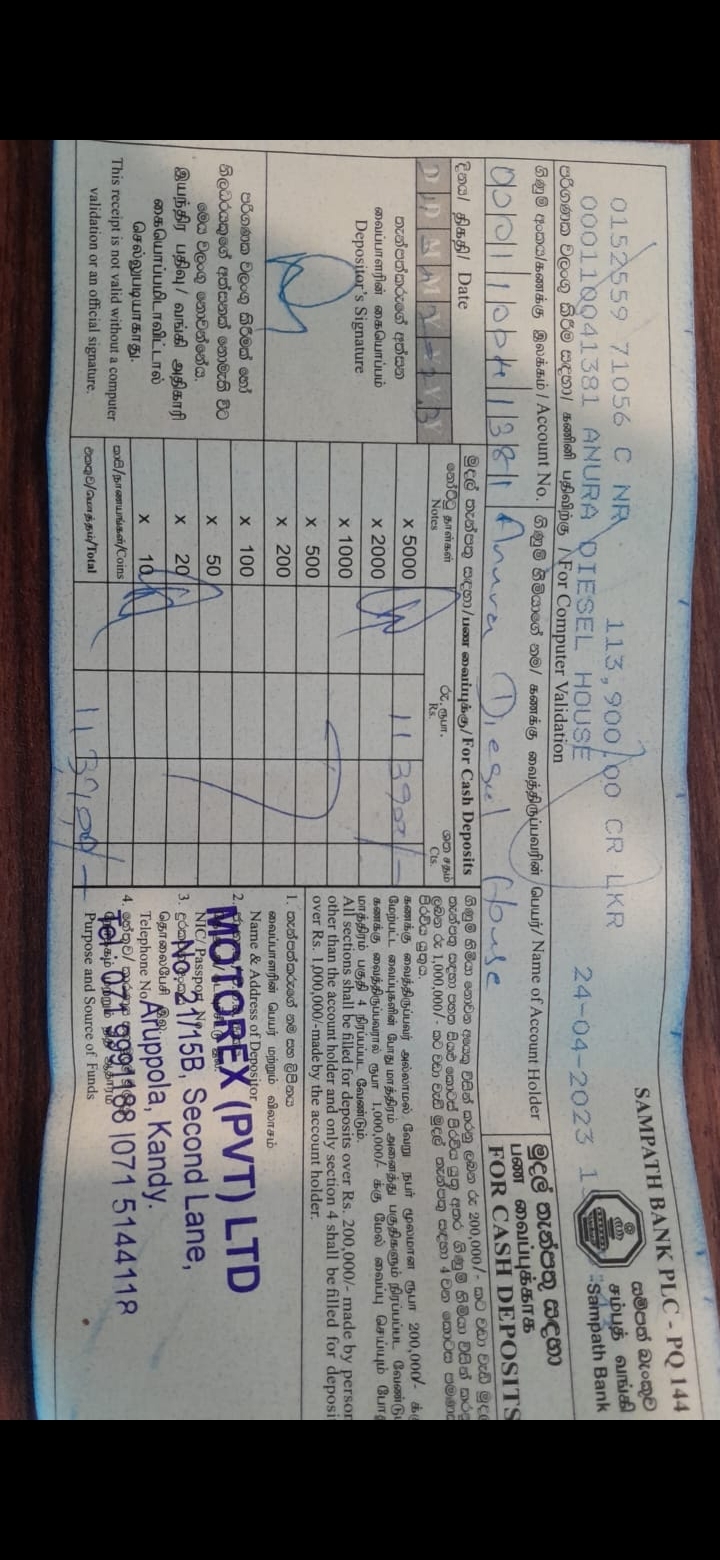 SAMPATH BANK PLC - PQ 144
සම්පත් බැංකුව
சம்பத் வங்கி
Sampath Bank
0152559 71056 C NR 113,900.00 CR LKR 24-04-2023 1
000110041381 ANURA DIESEL HOUSE
පරිගණක වලංගු කිරීම සඳහා/ கணினி பதிவிற்கு /For Computer Validation
මුදල් තැන්පතු සඳහා
பண வைப்புக்காக
FOR CASH DEPOSITS
ගිණුම් අංකය/கணக்கு இலக்கம்/Account No.
ගිණුම් හිමියාගේ නම/ கணக்கு வைத்திருப்பவரின் பெயர்/ Name of Account Holder
000110041381 Anura Diesel House
දිනය/ திகதி/ Date
මුදල් තැන්පතු සඳහා/பண வைப்புக்கு/For Cash Deposits
නෝට්ටු தாள்கள்
Notes
රු. ரூபா.
Rs.
ශත சதம்
Cts.
තැන්පත්කරුගේ අත්සන
வைப்பாளரின் கையொப்பம்
Depositor's Signature
x 5000 113900/-
x 2000
x 1000
x 500
x 200
x 100
x 50
x 20
x 10
කාසි/நாணயங்கள்/Coins
එකතුව/மொத்தம்/Total 113900/-
පරිගණක වලංගු කිරීමක් හෝ
නිලධරයකුගේ අත්සනක් නොමැති විට
මෙය වලංගු නොවන්නේය.
இயந்திர பதிவு/ வங்கி அதிகாரி
கையொப்பமிடாவிட்டால்
செல்லுபடியாகாது.
This receipt is not valid without a computer
validation or an official signature.
கணக்கு வைத்திருப்பவர் அல்லாமல் வேறு நபர் மூலமான ரூபா 200,000/-
மேற்பட்ட வைப்புகளின் போது மாத்திரம் அனைத்து பகுதிகளும் நிரப்பப்பட
கணக்கு வைத்திருப்பவரால் ரூபா 1,000,000/- க்கு மேல் வைப்பு செய்யும்
மாத்திரம் பகுதி 4 நிரப்பப்பட வேண்டும்.
All sections shall be filled for deposits over Rs. 200,000/- made by person
other than the account holder and only section 4 shall be filled for deposi
over Rs. 1,000,000/-made by the account holder.
1. තැන්පත්කරුගේ නම සහ ලිපිනය
வைப்பாளரின் பெயர் மற்றும் விலாசம்
Name & Address of Depositor
2.
NIC/ Passport No.
3.
தொலைபேசி இல.
Telephone No.
4.
Purpose and Source of Funds
MOTOREX (PVT) LTD
No 21/15B, Second Lane,
Aruppola, Kandy.
Tel: 071 9991188 |071 5144118